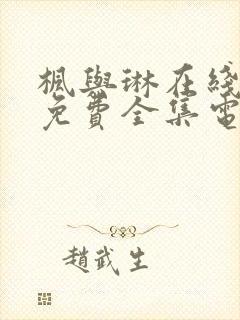 楓與琳在綫
免費全集電
趙武生